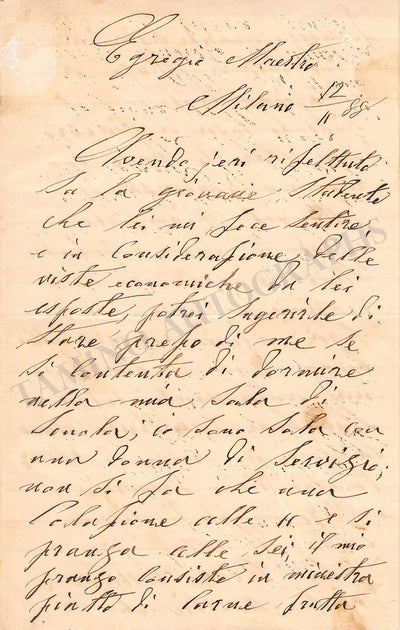 Egregio Maestro
Milano 12/11 88
Avendo jeri riflettuto
su la giovane Studente
che lei mi fece sentire
e in Considerazione delle
viste economiche da lei
esposte, potrei sugerirle di
stare prepo di me se
si contenta di dormire
nella mia sala di
Scuola; io sono sola con
una donna di servizio;
non si fa che una
Colazione alle 11 e si
pranza alle sei, il mio
pranzo Consiste in minestra
piatto di Carne frutta
TAMINO AUTOGRAPHS